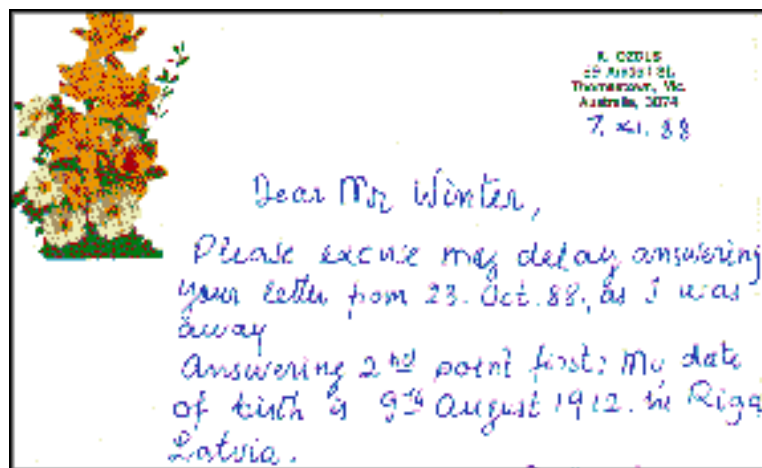 K. OZOLS
Thomastown, Vic.
Australia, 3074
7. XI. 88
Dear Mr Winter,
Please excuse my delay answering
your letter from 23. Oct. 88, as I was
away
Answering 2nd point first: My date
of birth is 9th August 1912. in Riga
Latvia.